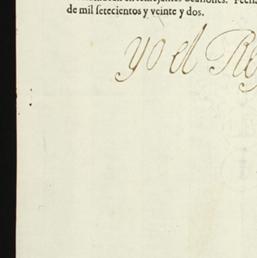 en semejantes ocasiones. Fecha
de mil setecientos y veinte y dos.
yo el Rey